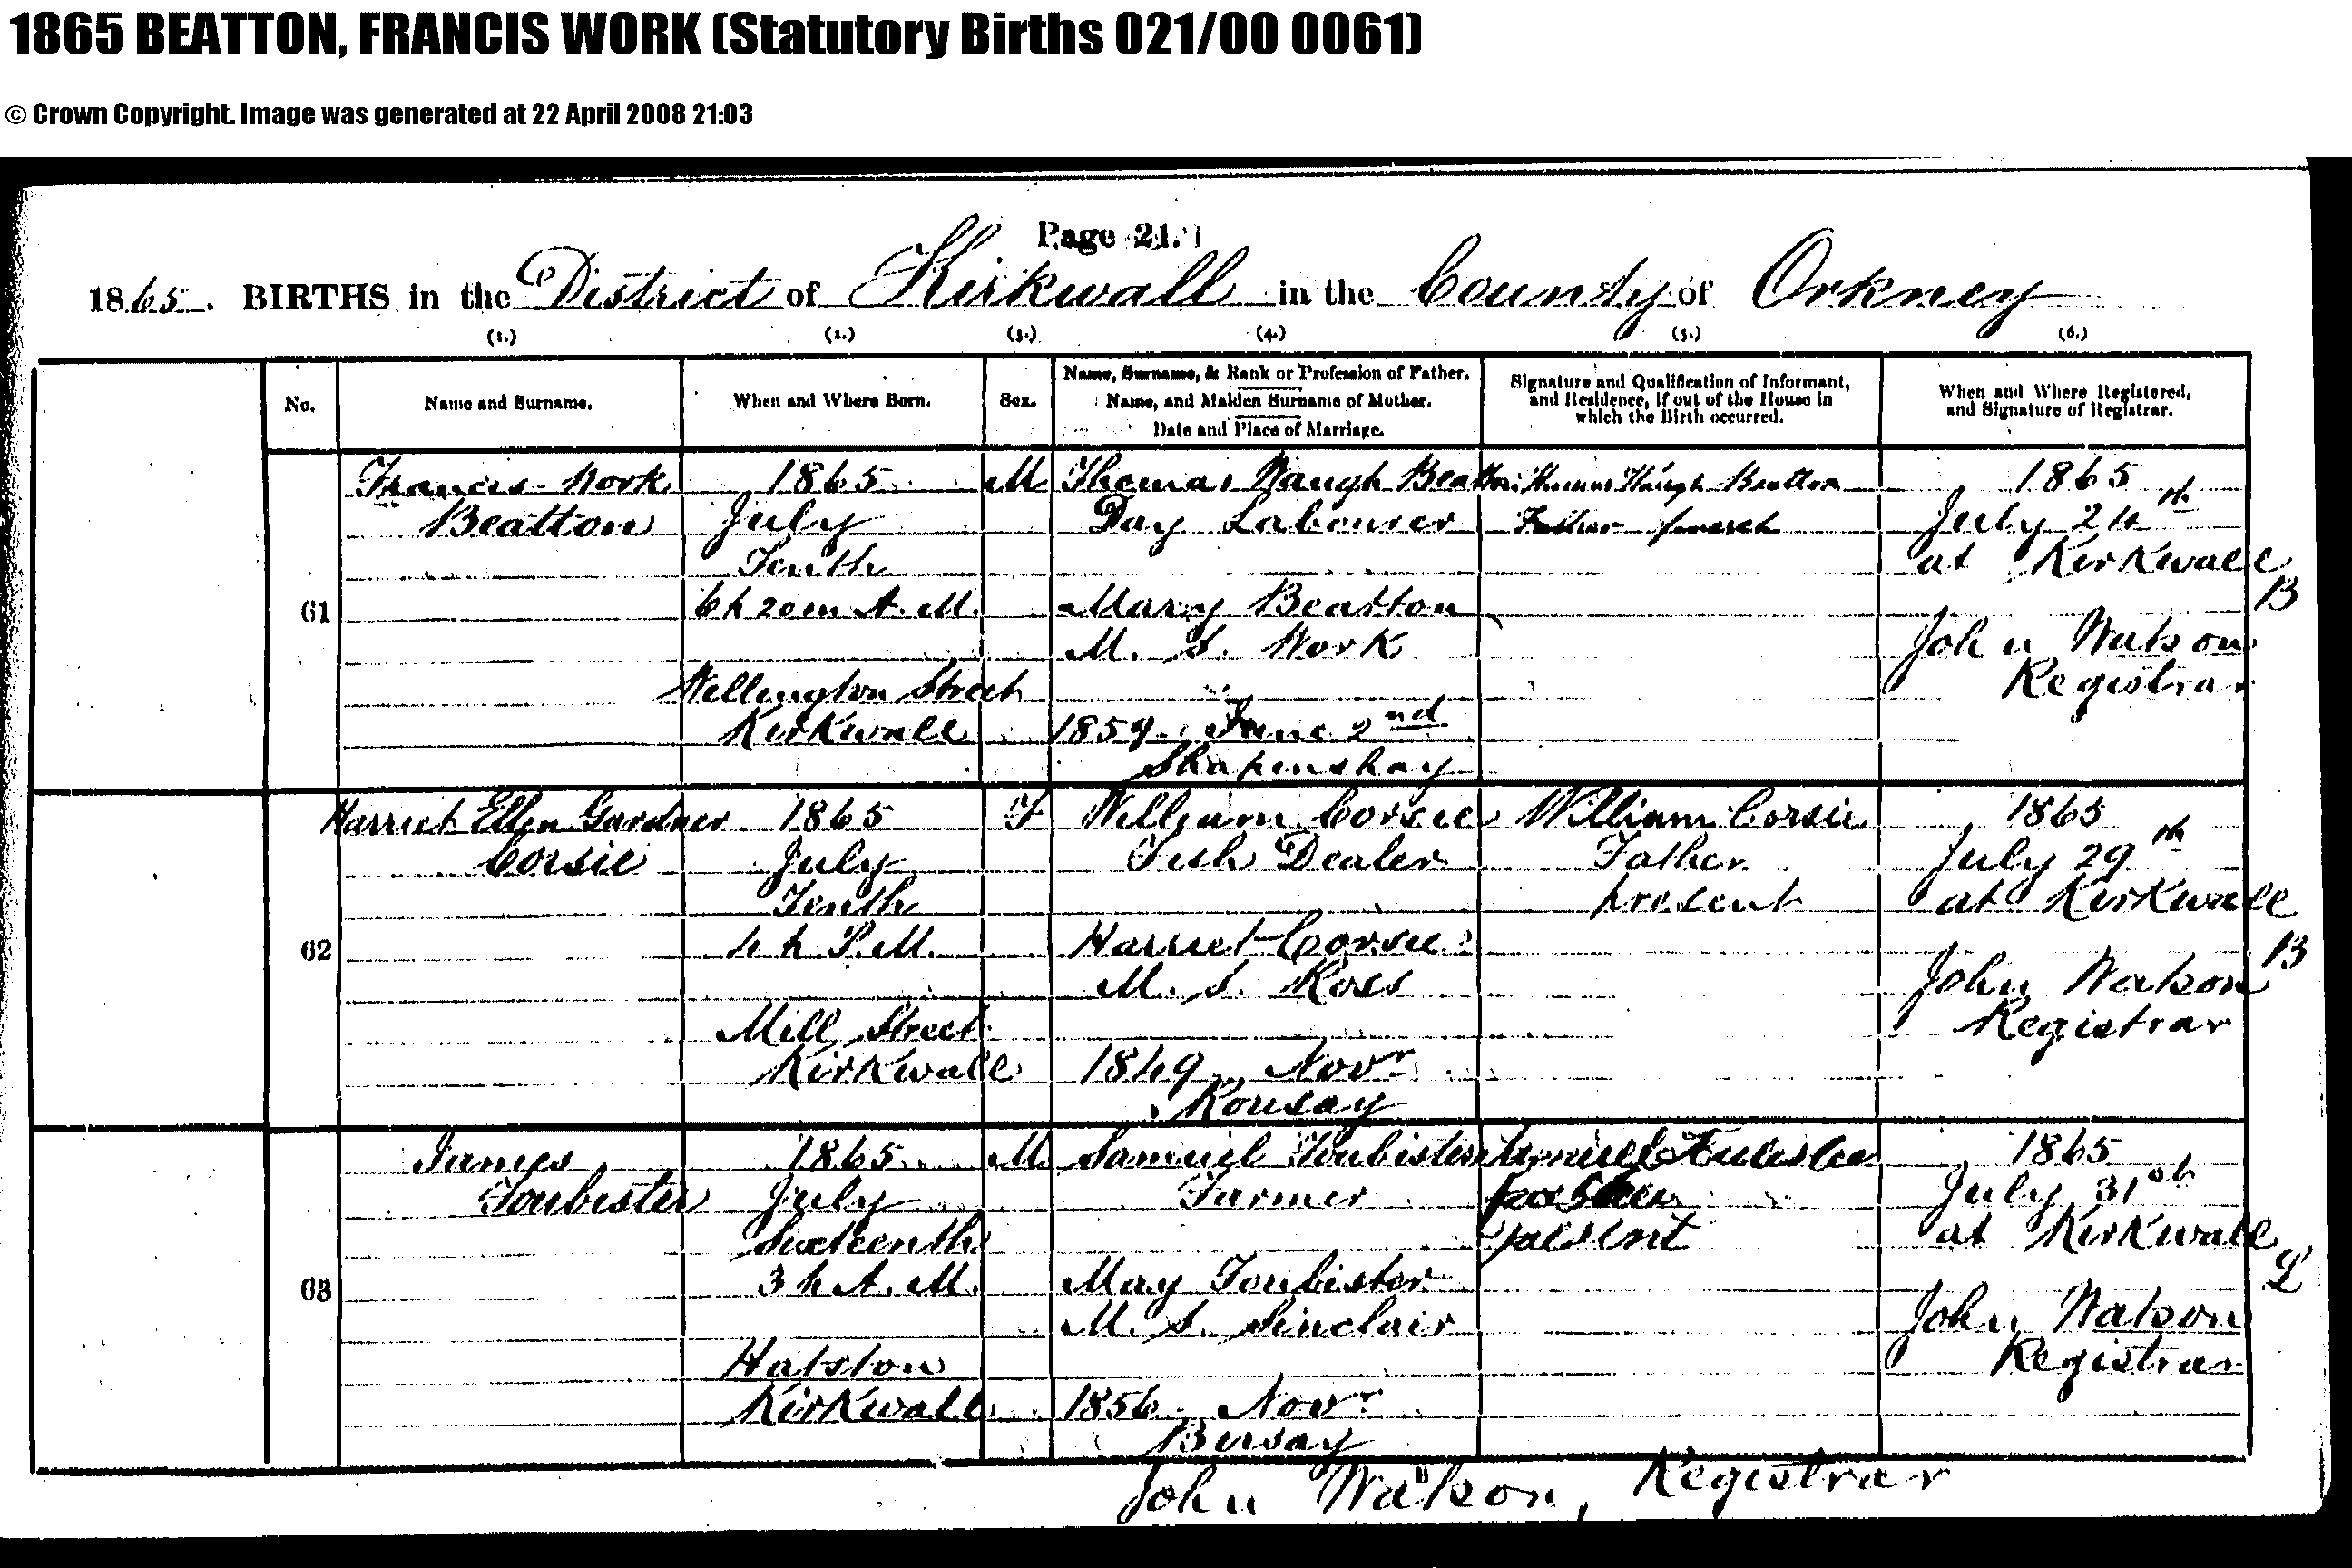 1865 BEATTON, FRANCIS WORK (Statutory Births 021/00 0061)
© Crown Copyright. Image was generated at 22 April 2008 21:03
Page 21.
1865. BIRTHS in the District of Kirkwall in the County of Orkney
(1.) (2.) (3.) (4.) (5.) (6.)
No.
Name and Surname.
When and Where Born.
Sex.
Name, Surname, & Rank or Profession of Father.
Name, and Maiden Surname of Mother.
Date and Place of Marriage.
Signature and Qualification of Informant,
and Residence, if out of the House in
which the Birth occurred.
When and Where Registered,
and Signature of Registrar.
61
Francis Work
Beatton
1865
July
Tenth
6 h 20 m A. M.
Wellington Street
Kirkwall
M
Thomas Waugh Beatton
Day Labourer
Mary Beatton
M. S. Work
1859 June 2nd
Shapinshay
Thomas Waugh Beatton
Father present
1865
July 24th
at Kirkwall
John Watson
Registrar
B
62
Harriet Ellen Gardner
Corsie
1865
July
Tenth
4 h P. M.
Mill Street
Kirkwall
F
William Corsie
Fish Dealer
Harriet Corsie
M. S. Ross
1849 Novr
Rousay
William Corsie
Father
present
1865
July 29th
at Kirkwall
John Watson
Registrar
B
63
James
Foubister
1865
July
Sixteenth
3 h A. M.
Hatston
Kirkwall
M
Samuel Foubister
Farmer
May Foubister
M. S. Sinclair
1856 Novr
Birsay
Samuel
present
1865
July 31st
at Kirkwall
John Watson
Registrar
John Watson, Registrar